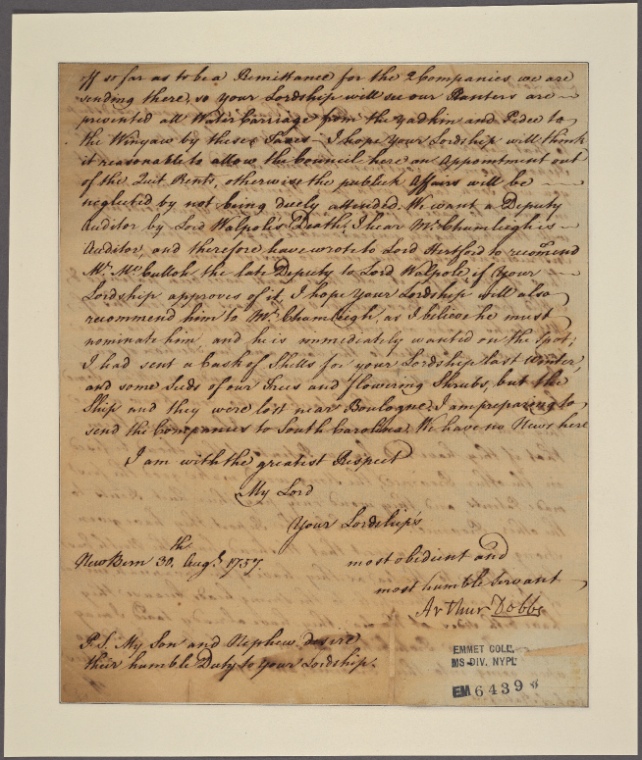 so far as to be a Remittance for the 2 Companies we are
sending there, so your Lordship will see our Planters are
prevented all Water Carriage from the Yadkin and Pedee to
the Winyaw by these Taxes I hope your Lordship will think
it reasonable to allow the Council here an Appointment out
of the Quit Rents, otherwise the publick Affairs will be
neglected by not being duely attended. We want a Deputy
Auditor by Lord Walpole's Death, I hear Mr. Chumleigh is
Auditor, and therefore have wrote to Lord Hertford to recomend
Mr. McCulloh the late Deputy to Lord Walpole if your
Lordship approves of it, I hope your Lordship will also
recommend him to Mr. Chumleigh, as I believe he must
nominate him, and he is immediately wanted on the Spot;
I had sent a Cask of Shells for your Lordship last Winter,
and some Seeds of our Trees and flowering Shrubs, but the
Ship and they were lost near Boulogne, I am preparing to
send the Companies to South Carolina. We have no News here
I am with the greatest Respect
My Lord
Your Lordship's
New Bern 30th. Augt. 1757.
most obedient and
most humble Servant
Arthur Dobbs
P.S. My Son and Nephew desire
their humble Duty to your Lordship.
EMMET COLL.
MS. DIV. NYPL
EM 6439